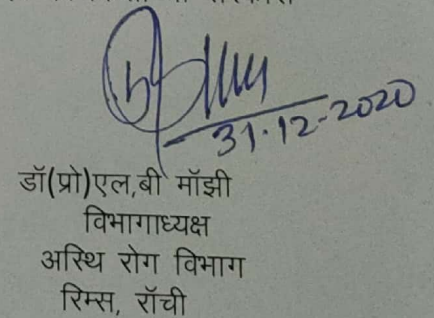 31.12-2020
डॉ(प्रो)एल,बी मॉझी
विभागाध्यक्ष
अस्थि रोग विभाग
रिम्स, रॉची